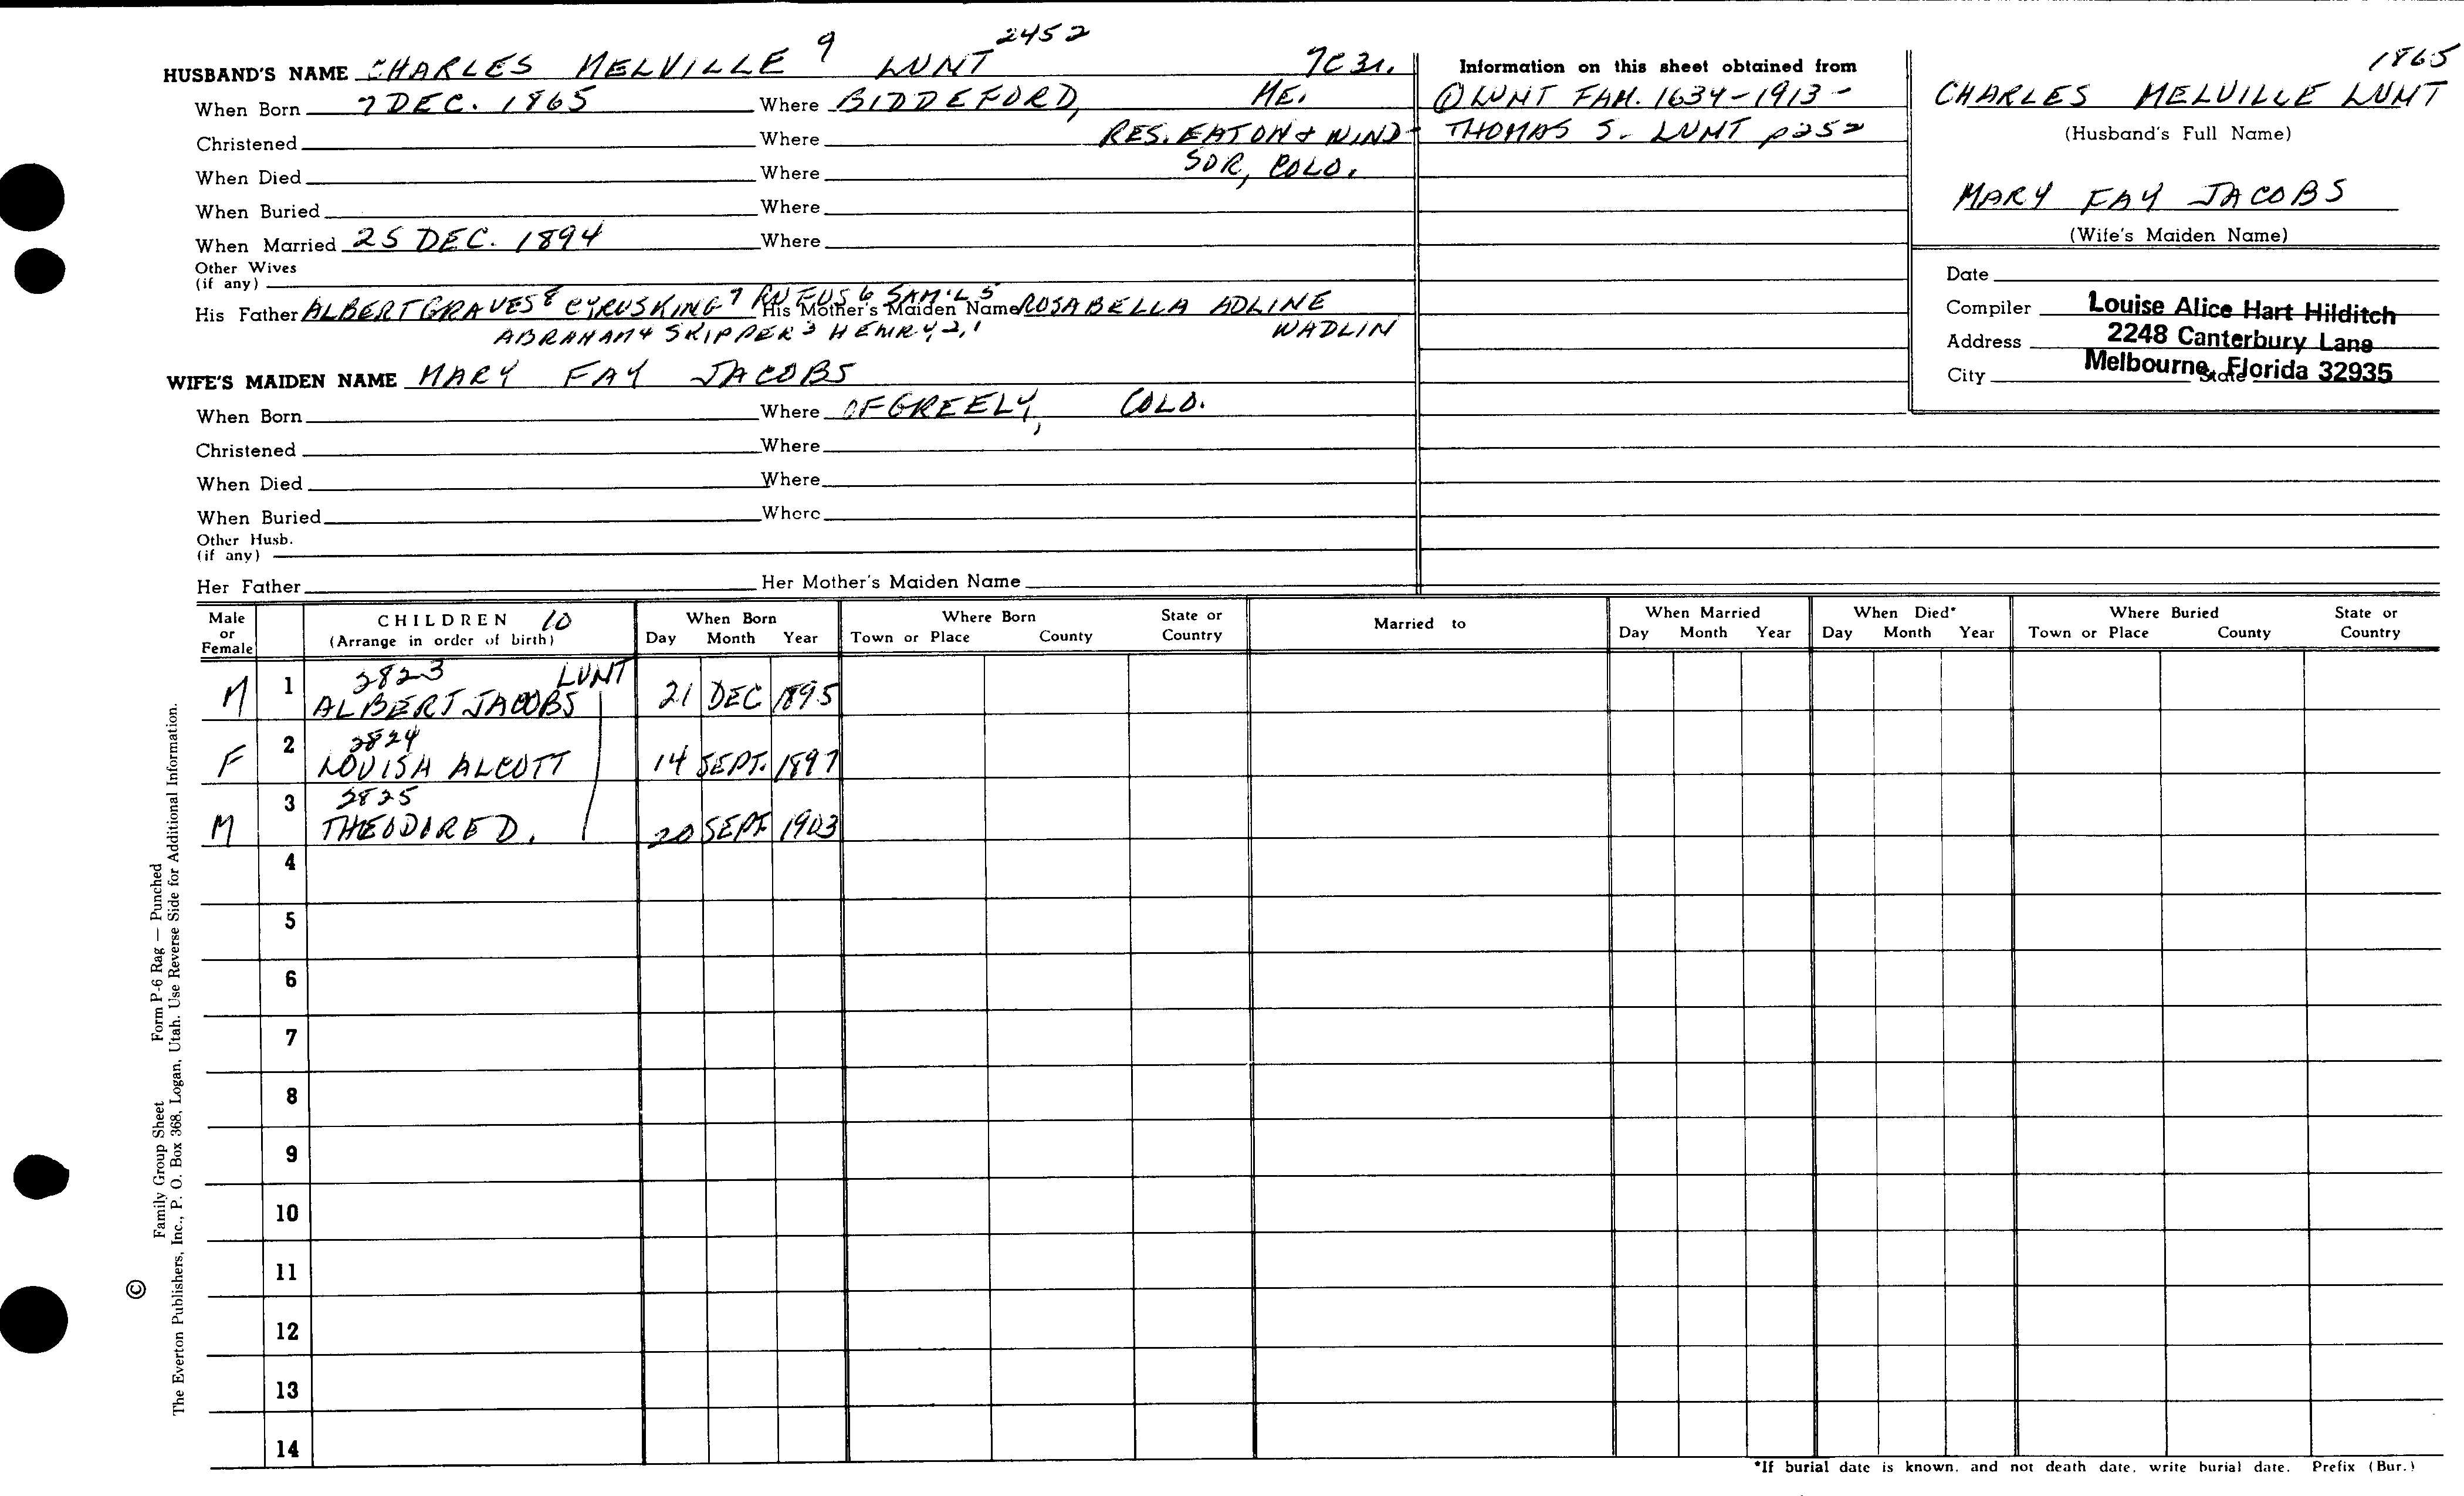 HUSBAND'S NAME CHARLES MELVILLE 9 LUNT 2452 7C31.
When Born 7 DEC. 1865 Where BIDDEFORD, ME.
Christened Where RES. EATON & WIND-
When Died Where SOR, COLO.
When Buried Where
When Married 25 DEC. 1894 Where
Other Wives
(if any)
His Father ALBERT GRAVES 8 CYRUS KING 7 RUFUS 6 SAM'L 5 His Mother's Maiden Name ROSABELLA ADLINE
ABRAHAM 4 SKIPPER 3 HENRY 2,1 WADLIN
WIFE'S MAIDEN NAME MARY FAY JACOBS
When Born Where OF GREELY, COLO.
Christened Where
When Died Where
When Buried Where
Other Husb.
(if any)
Her Father Her Mother's Maiden Name
Information on this sheet obtained from
① LUNT FAM. 1634-1913-
THOMAS S. LUNT p252
1865
CHARLES MELVILLE LUNT
(Husband's Full Name)
MARY FAY JACOBS
(Wife's Maiden Name)
Date
Compiler Louise Alice Hart Hilditch
Address 2248 Canterbury Lane
City Melbourne, State Florida 32935
Male or Female CHILDREN 10 (Arrange in order of birth) When Born Day Month Year Where Born Town or Place County State or Country Married to When Married Day Month Year When Died* Day Month Year Where Buried Town or Place County State or Country
2823 LUNT
M 1 ALBERT JACOBS 21 DEC 1895
2824
F 2 LOUISA ALCOTT 14 SEPT. 1897
2825
M 3 THEODORE D. 20 SEPT. 1903
4
5
6
7
8
9
10
11
12
13
14
*If burial date is known, and not death date, write burial date. Prefix (Bur.)
© Family Group Sheet Form P-6 Rag — Punched
The Everton Publishers, Inc., P. O. Box 368, Logan, Utah. Use Reverse Side for Additional Information.